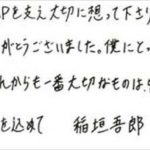 Pを支え大切に想って下さり
がとうございました。僕にとっ
れからも一番大切なものは、
を込めて 稲垣吾郎